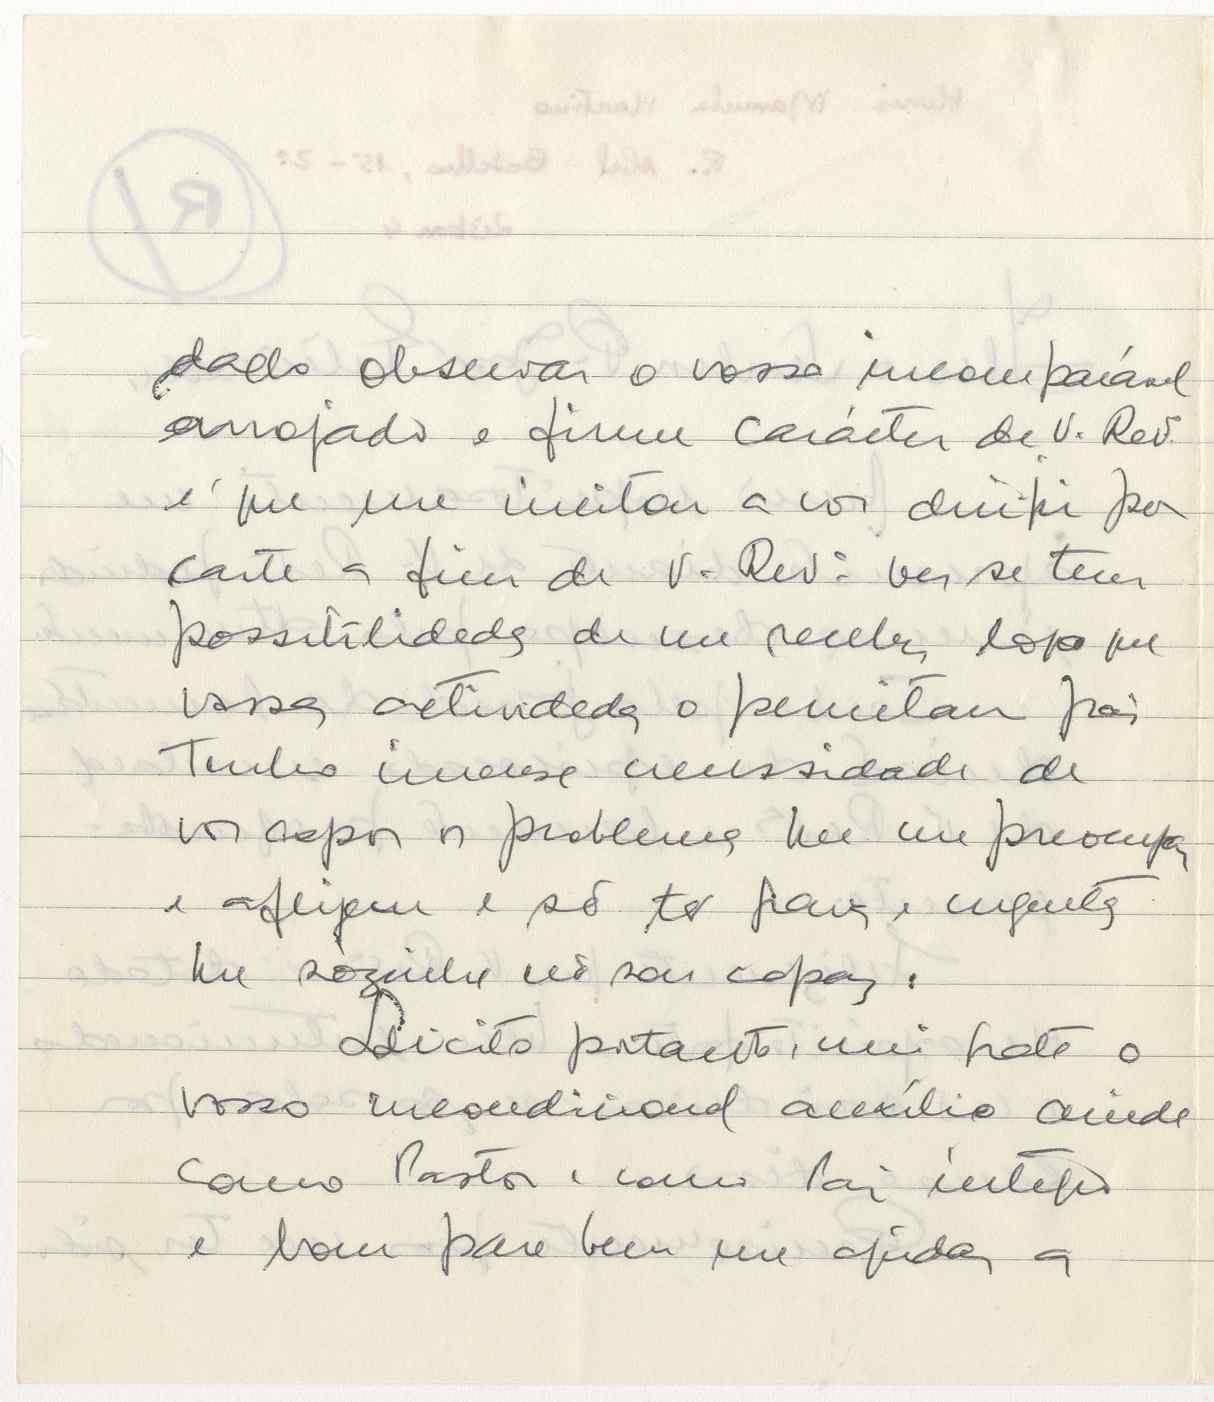 dado observar o vosso incomparável
arrojado e firme carácter de V. Rev.
é que me incitou a vos dirigir por
carta a fim de V. Rev. ver se tem
possibilidades de me receber, logo que
vossas actividades o permitam pois
Tenho imensa necessidade de
vos expor os problemas que me preocupam
e afligem e só graves e urgentes
que sòzinha não sou capaz.
Solicito portanto, mui grata o
vosso incondicional auxílio ainda
como Pastor e como Pai íntegro
e bom para bem me ajudar a